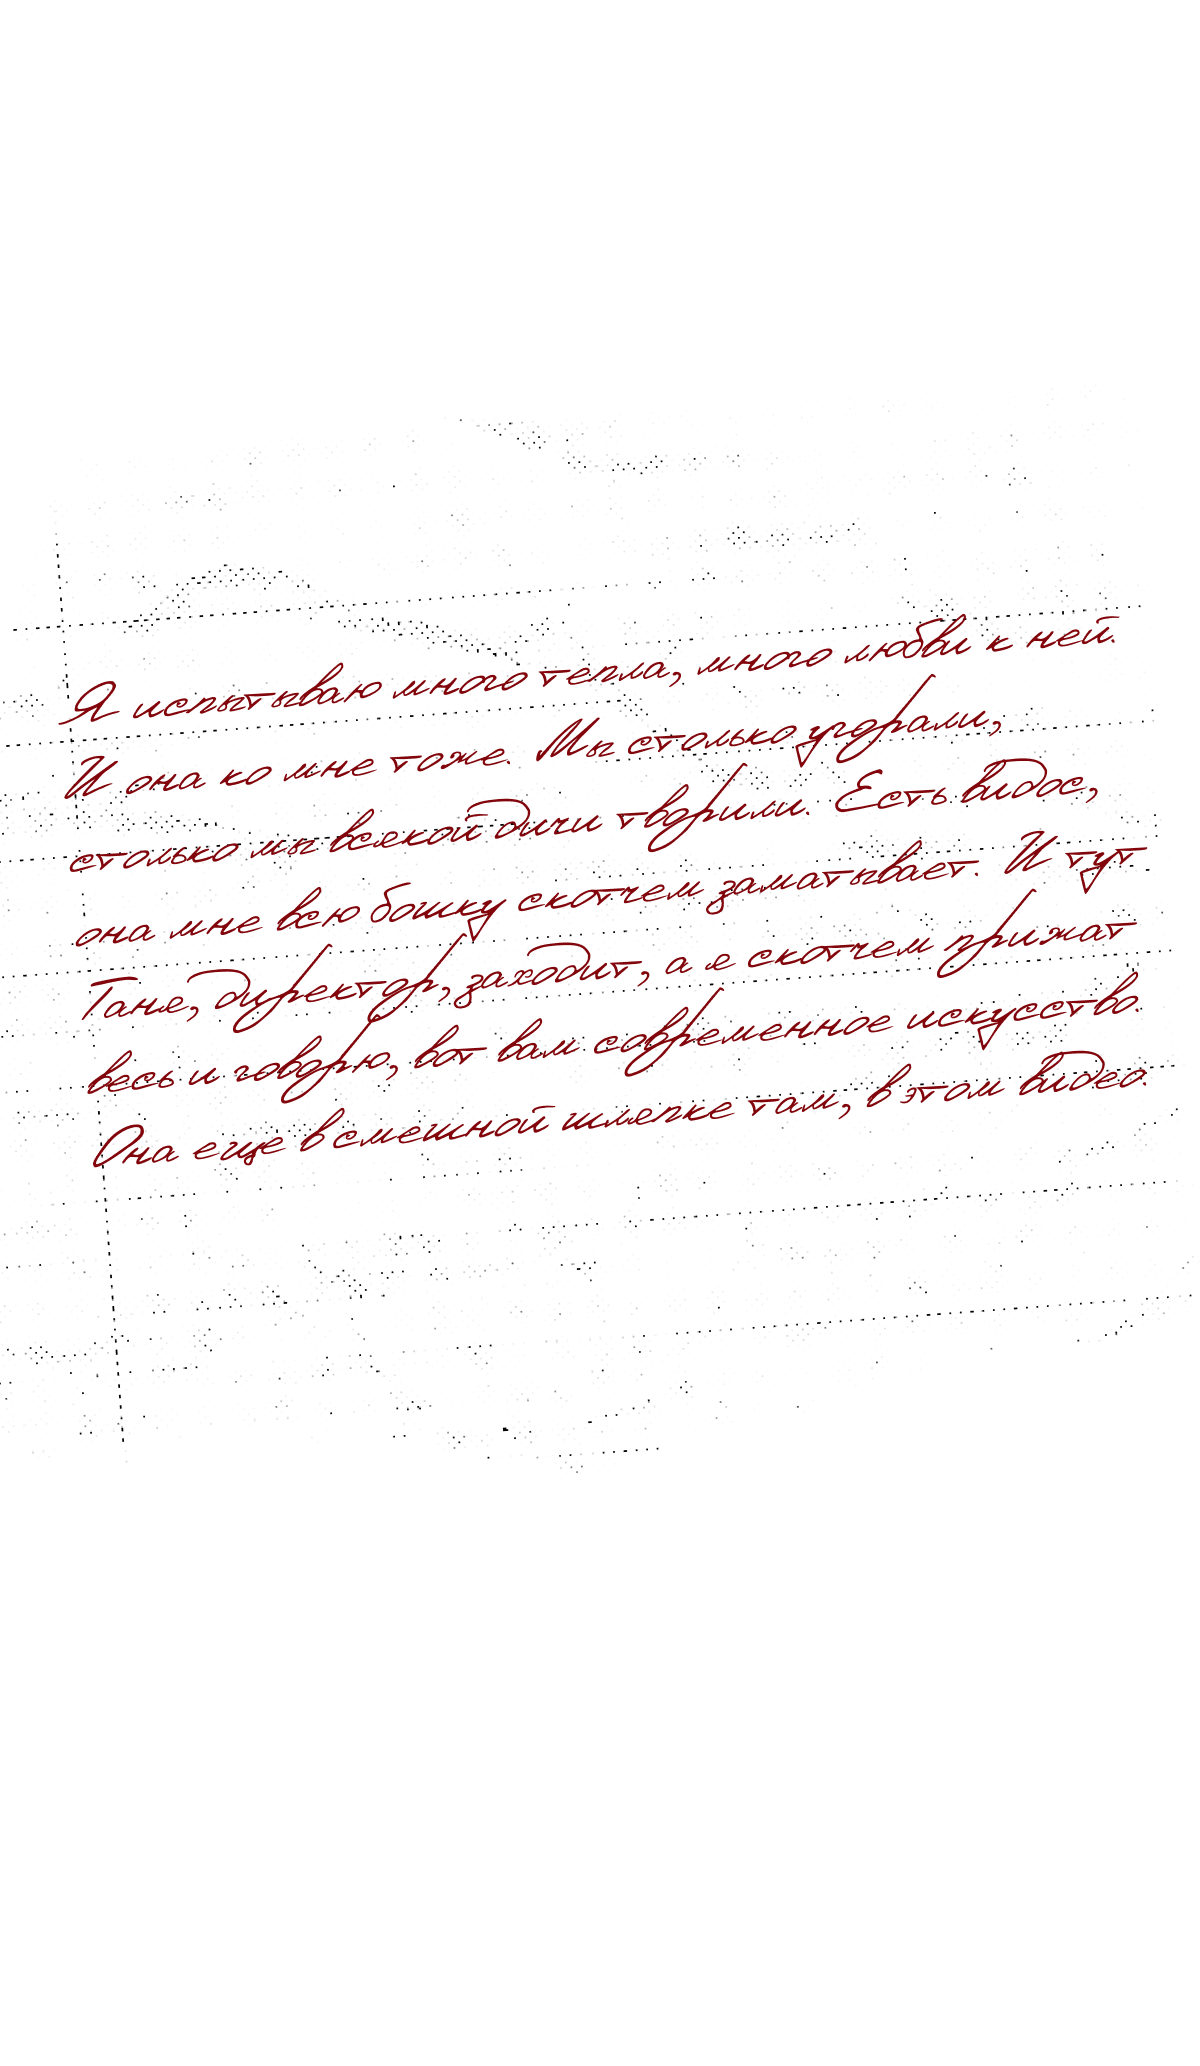 Я испытываю много тепла, много любви к ней.
И она ко мне тоже. Мы столько угорали,
столько мы всякой дичи творили. Есть видос,
она мне всю бошку скотчем заматывает. И тут
Таня, директор, заходит, а я скотчем прижат
весь и говорю, вот вам современное искусство.
Она еще в смешной шляпке там, в этом видео.